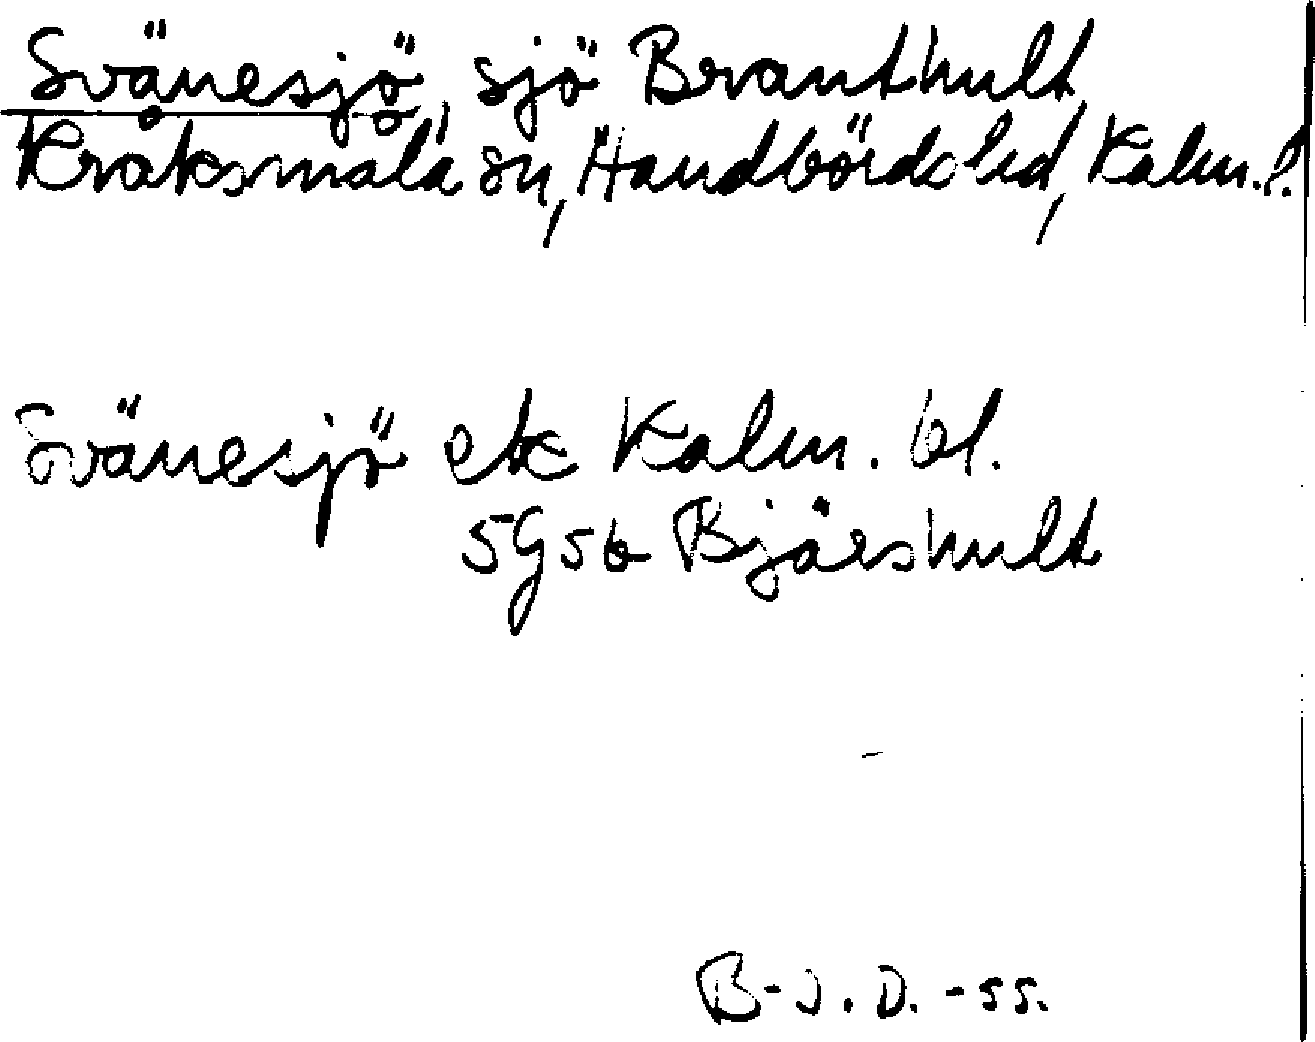 Svänesjö, sjö Branthult,
Kråksmåla sn, Handbörds hd, Kalm. l.
Svänesjö ek Kalm. bl.
5G5b Bjärshult
B-J. D. -55.